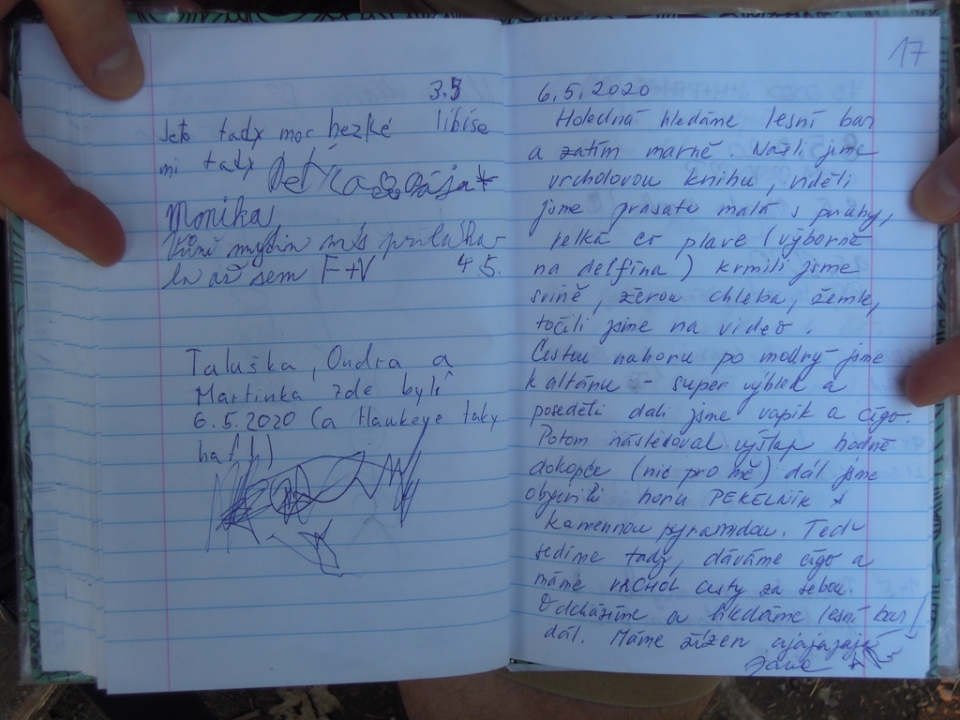 3.5
Jeto tady moc hezké líbíse
mi tady Peťka Dája
Monika
Vůně mýtin nás přilákа-
la až sem F+V 4 5.
Taluška, Ondra a
Martinka zde byli
6.5.2020 (a Haukeye taky
haf!)
17
6.5.2020
Hodedná hledáme lesní bar
a zatím marně. Našli jsme
vrcholovou knihu, viděli
jsme prasata malá s pruhy,
velká co plave (výborně
na delfína) krmili jsme
svině, žerou chleba, žemle,
točili jsme na video.
Cestou nahoru po modrý jsme
k altánu - super výhled a
poseděli dali jsme vapik a cígo.
Potom následoval výšlap hodně
dokopce (nic pro mě) dál jsme
objevili horu PEKELNÍK s
kamennou pyramidou. Teď
sedíme tady, dáváme cígo a
máme VRCHOL cesty za sebou.
Odcházíme a hledáme lesní bar
dál. Máme žízeň ajajajajaj